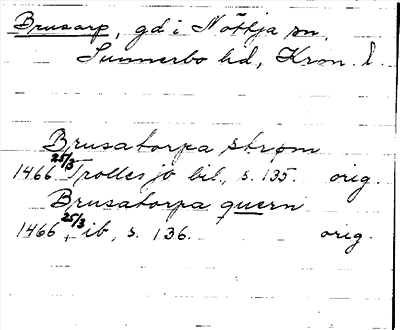 Brusarp, gd i Nöttja sn,
Sunnerbo hd, Kron. l.
Brusatorpa strøm
1466 25/3 Trollesjö bil., s. 135. orig.
Brusatorpa quern
1466 25/3, ib, s. 136. orig.